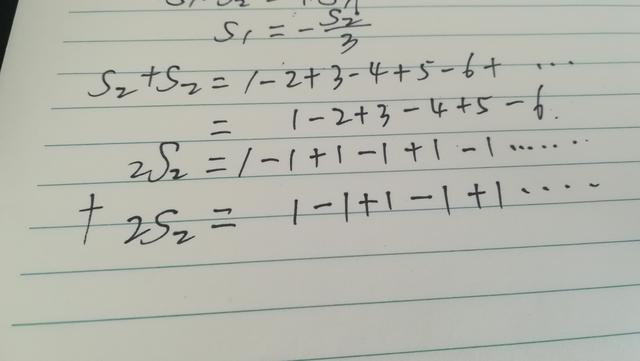 S₁ = -S₂/3
S₂+S₂ = 1-2+3-4+5-6+ ...
= 1-2+3-4+5-6.
2S₂ = 1-1+1-1+1-1......
+ 2S₂ = 1-1+1-1+1....